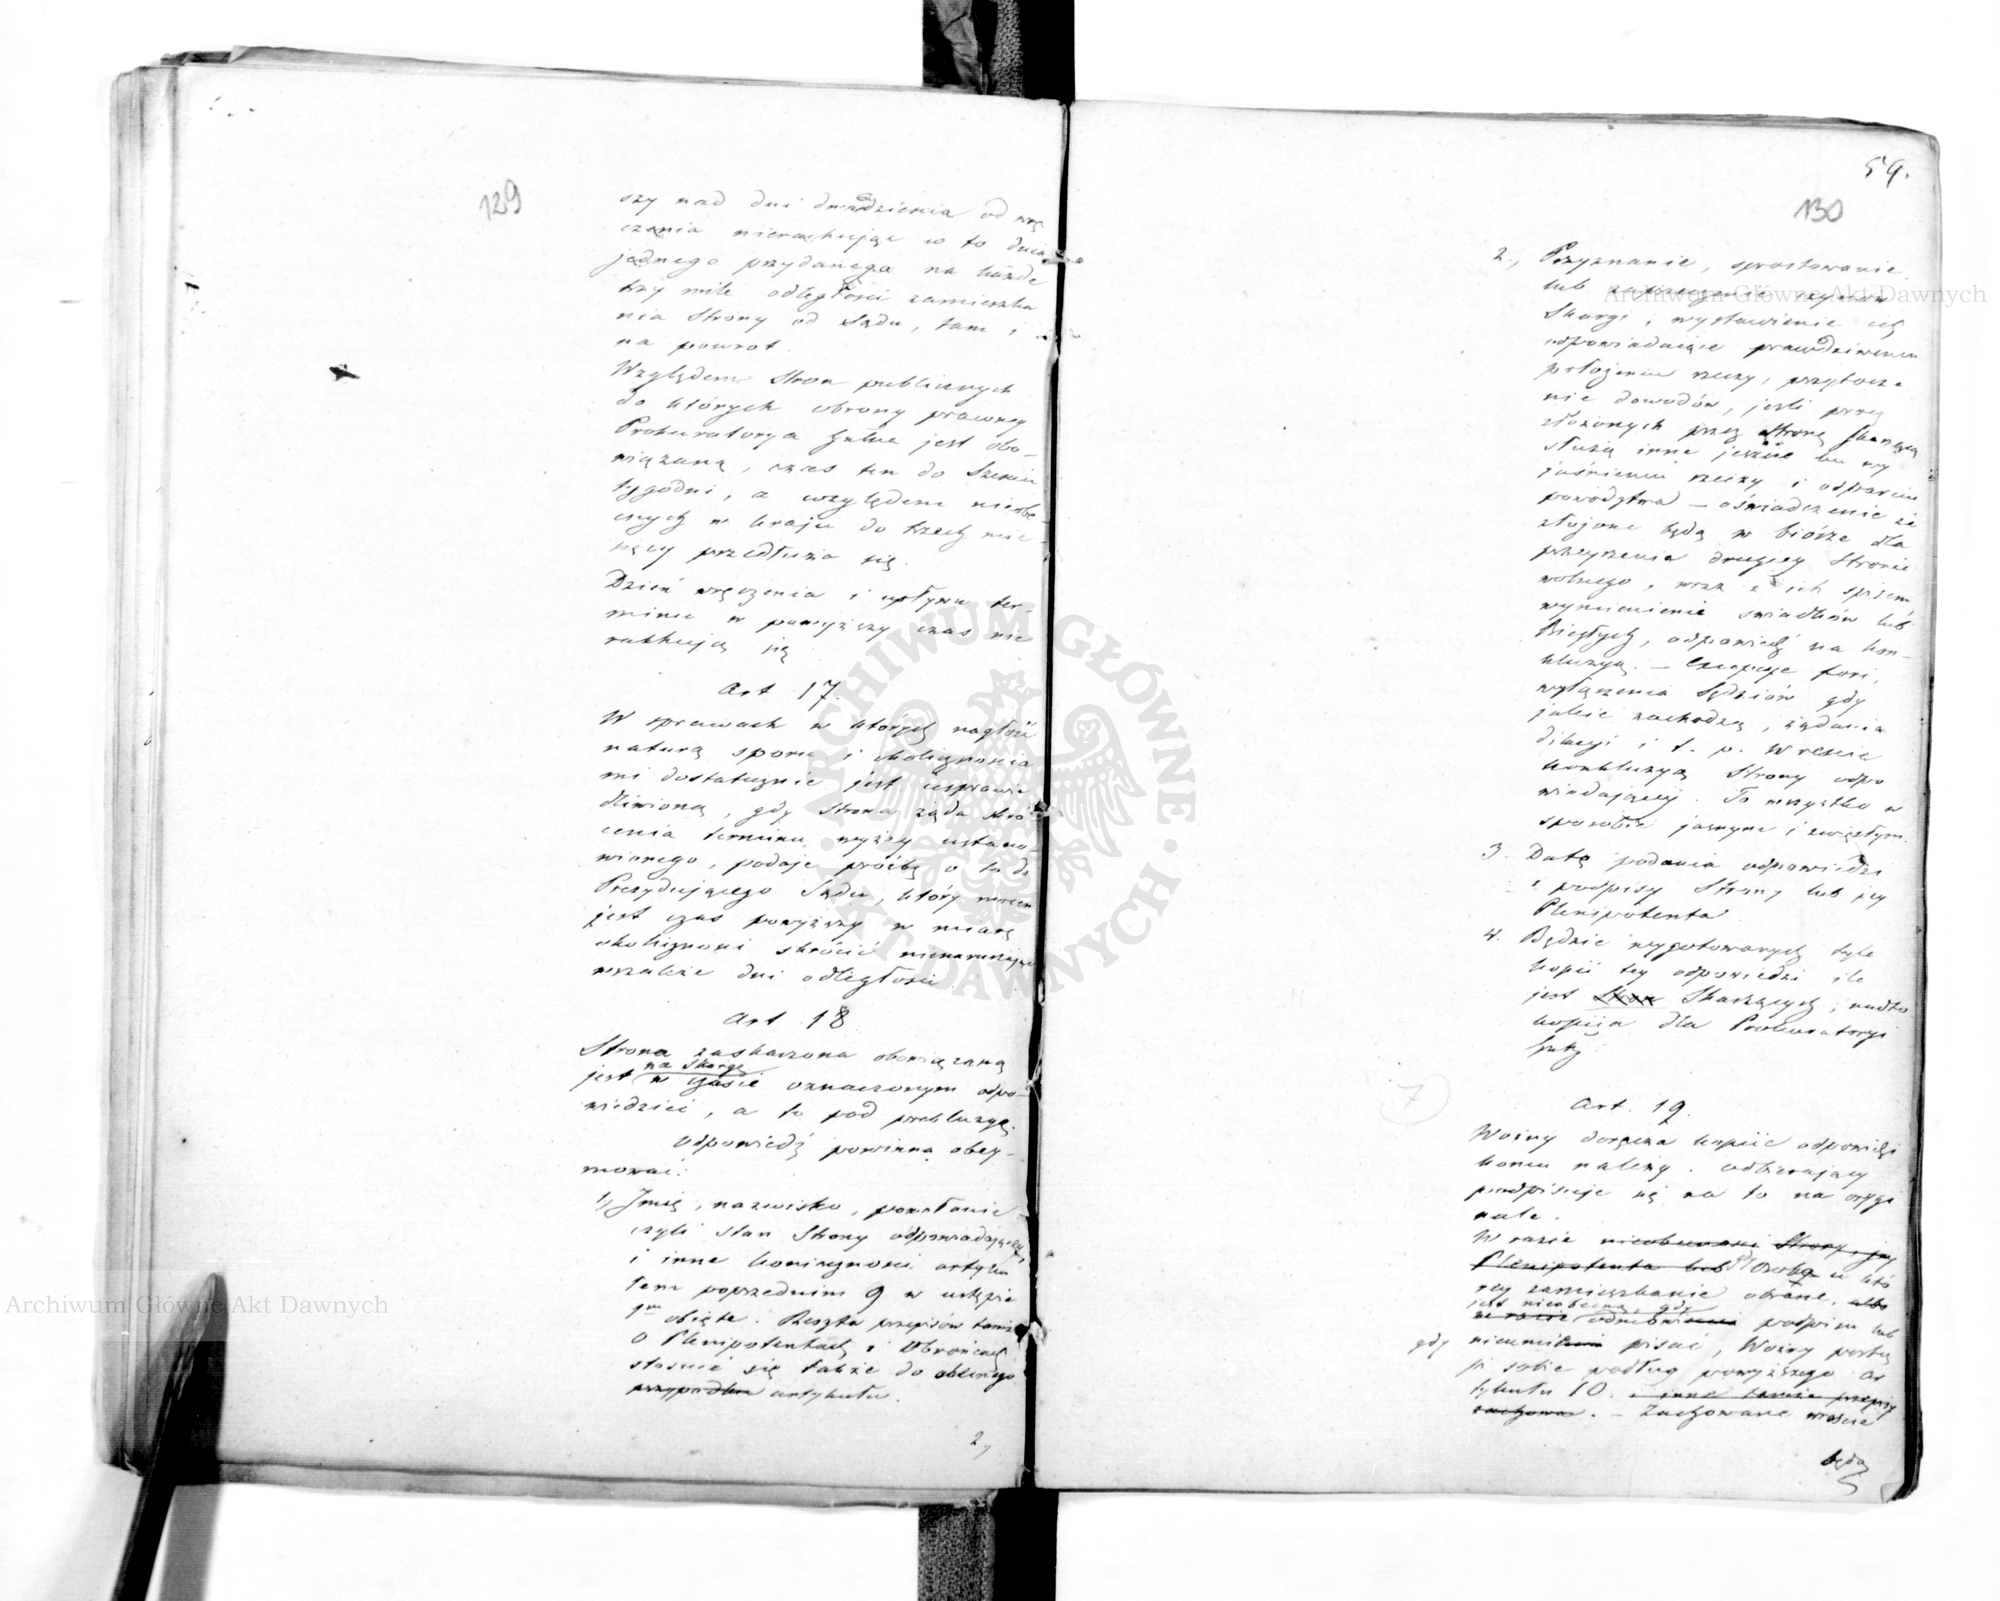 129
szy nad dni dwadzieścia od wrę
czenia nierachując w to dnia
jednego przydanego na każde
trzy mile odległości zamieszka
nia Strony od Sądu, tam i
na powrot.
Względem Stron publicznych
do których obrony prawney
Prokuratorya Gylna jest obo-
wiązaną, czas ten do Sześciu
tygodni, a względem nieobe-
cnych w kraju do trzech mie-
sięcy przedłuża się.
Dzień wręczenia i upływu ter-
minu w powyższy czas nie
rachują się
Art 17.
W sprawach w których nagłość
naturą sporu i okolicznościa
mi dostatecznie jest usprawie
dliwioną, gdy Strona żąda skró
cenia terminu wyżey ustano-
wionego, podaje prośbę o to do
Prezydującego Sądu, który mocen
jest czas powyższy w miarę
okoliczności skrócić nienaruszając
wszakże dni odległości.
Art 18
Strona zaskarzona obowiązaną
na Skargę
jest w czasie oznaczonym odpo-
wiedzieć, a to pod prekluzyą.
Odpowiedź powinna obey-
mować:
1, Imię, nazwisko, powołanie
czyli stan Strony odpowiadającey,
i inne okoliczności artyku
łem poprzednim 9 w ustępie
1m objęte. Reszta przepisów tamże
o Plenipotentach i Obrońcach
stosuie się także do obecnego
przypadku artykułu.
2,
59.
130
2, Przyznanie, sprostowanie
lub zaprzeczenie czynów
Skargi, wystawienie ich
odpowiadaiące prawdziwemu
położeniu rzeczy, przytocze
nie dowodów, jeśli prócz
złożonych przez Stronę Skarzącą
służą inne jeszcze ku wy
jaśnieniu rzeczy i odparciu
powództwa – oświadczenie że
złożone będą w biórze dla
przeyrzenia drugiey Stronie
wolnego, wraz z ich spisem
wymienienie świadków lub
Biegłych, odpowiedź na kon-
kluzyą. – Excepcye fori,
wyłączenia Sędziów gdy
jakie zachodzą, żądania
dilacyi i t. p. Wreście
konkluzyą Strony odpo
wiadającey. To wszystko w
sposobie jasnym i zwięzłym.
3. Datę podania odpowiedzi
i podpisy Strony lub jey
Plenipotenta
4. Będzie wygotowanych tyle
kopii tey odpowiedzi ile
jest Stron Skarżących, nadto
kopija dla Prokuratoryi
Gnley
7
Art. 19.
Woźny doręcza kopiie odpowiedzi
komu należy. Odbierający
podpisuje się na to na orygi
nale.
W razie nieobecności Strony, jey
Plenipotenta lub gdy osoba u któ
rey zamieszkanie obrane, albo
jest nieobecna, gdy
w razie odmówienia podpisu lub
gdy nieumie pisać, Woźny postą
pi sobie podług powyższego ar
tykułu 10. i inne tamże przepisy
zachowa. – Zachowane wreście
będą
Archiwum Główne Akt Dawnych
Archiwum Główne Akt Dawnych
ARCHIWUM GŁÓWNE AKT DAWNYCH